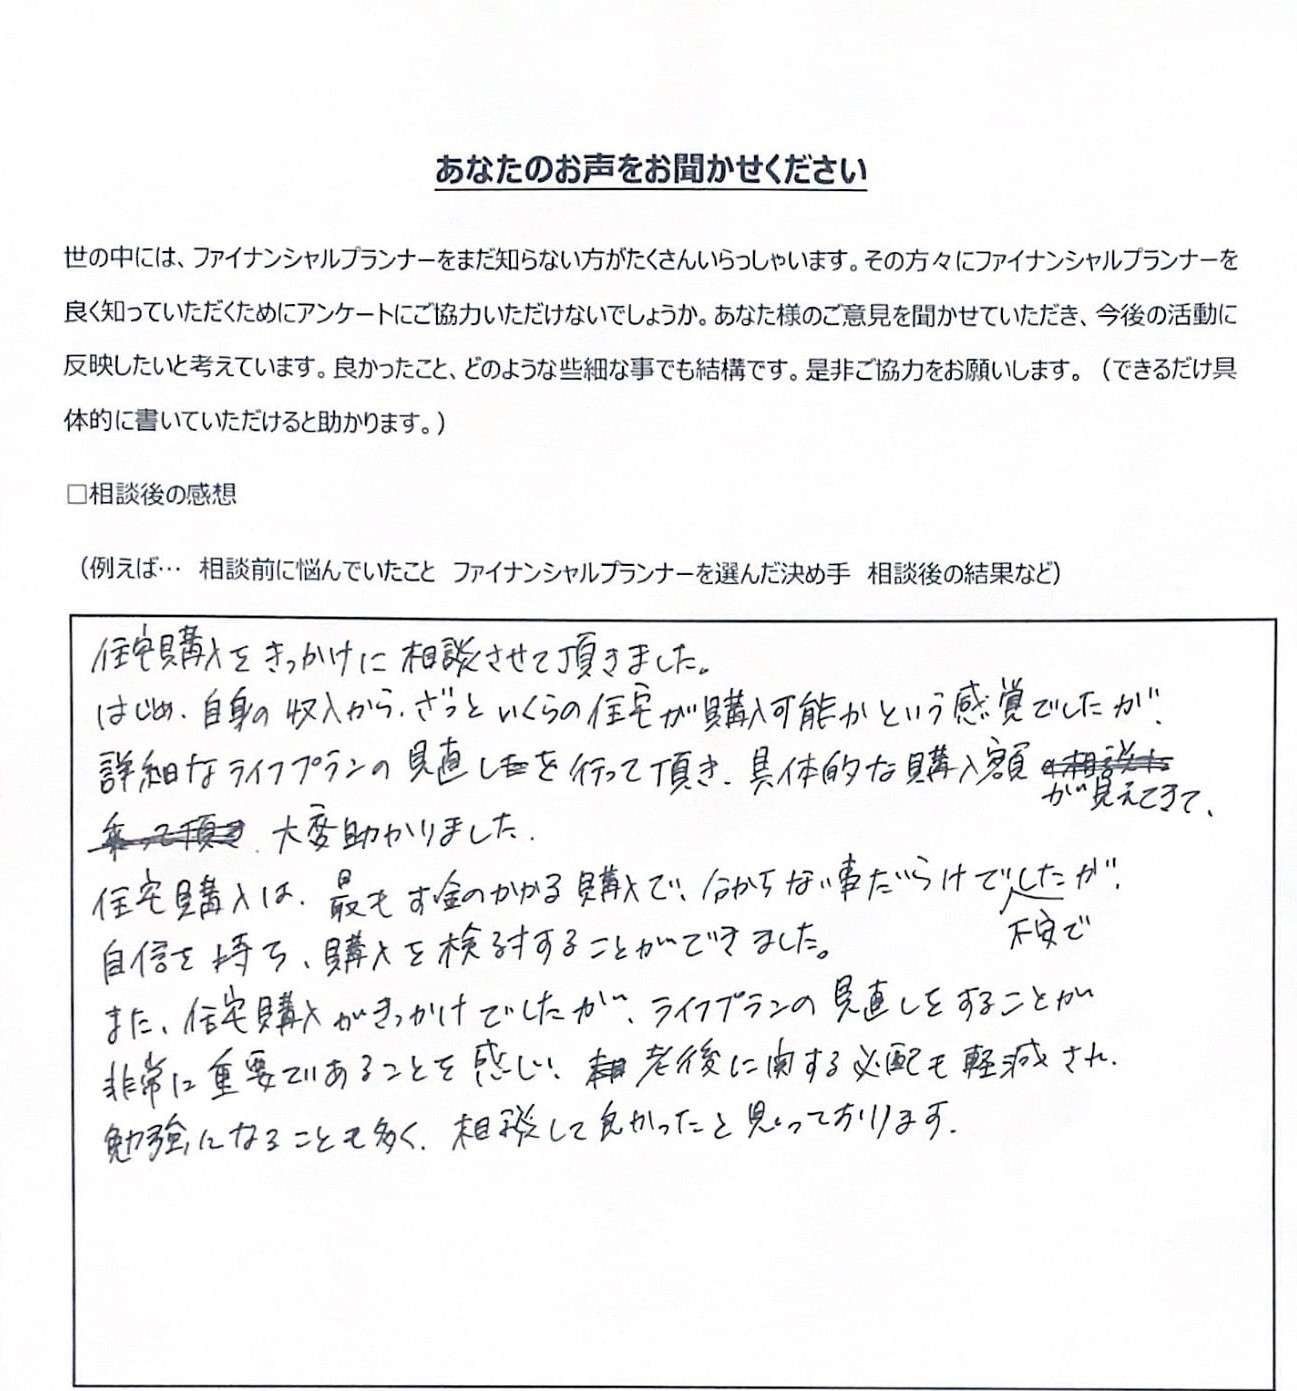 あなたのお声をお聞かせください
世の中には、ファイナンシャルプランナーをまだ知らない方がたくさんいらっしゃいます。その方々にファイナンシャルプランナーを
良く知っていただくためにアンケートにご協力いただけないでしょうか。あなた様のご意見を聞かせていただき、今後の活動に
反映したいと考えています。良かったこと、どのような些細な事でも結構です。是非ご協力をお願いします。（できるだけ具
体的に書いていただけると助かります。）
□相談後の感想
（例えば… 相談前に悩んでいたこと ファイナンシャルプランナーを選んだ決め手 相談後の結果など）
住宅購入をきっかけに相談させて頂きました。
はじめ、自身の収入から、ざっといくらの住宅が購入可能かという感覚でしたが、
詳細なライフプランの見直しを行って頂き、具体的な購入額
が見えてきて、
大変助かりました。
住宅購入は、最もお金のかかる購入で、分からない事だらけでしたが、
不安で
自信を持ち、購入を検討することができました。
また、住宅購入がきっかけでしたが、ライフプランの見直しをすることが
非常に重要であることを感じ、老後に関する心配も軽減され、
勉強になることも多く、相談して良かったと思っております。